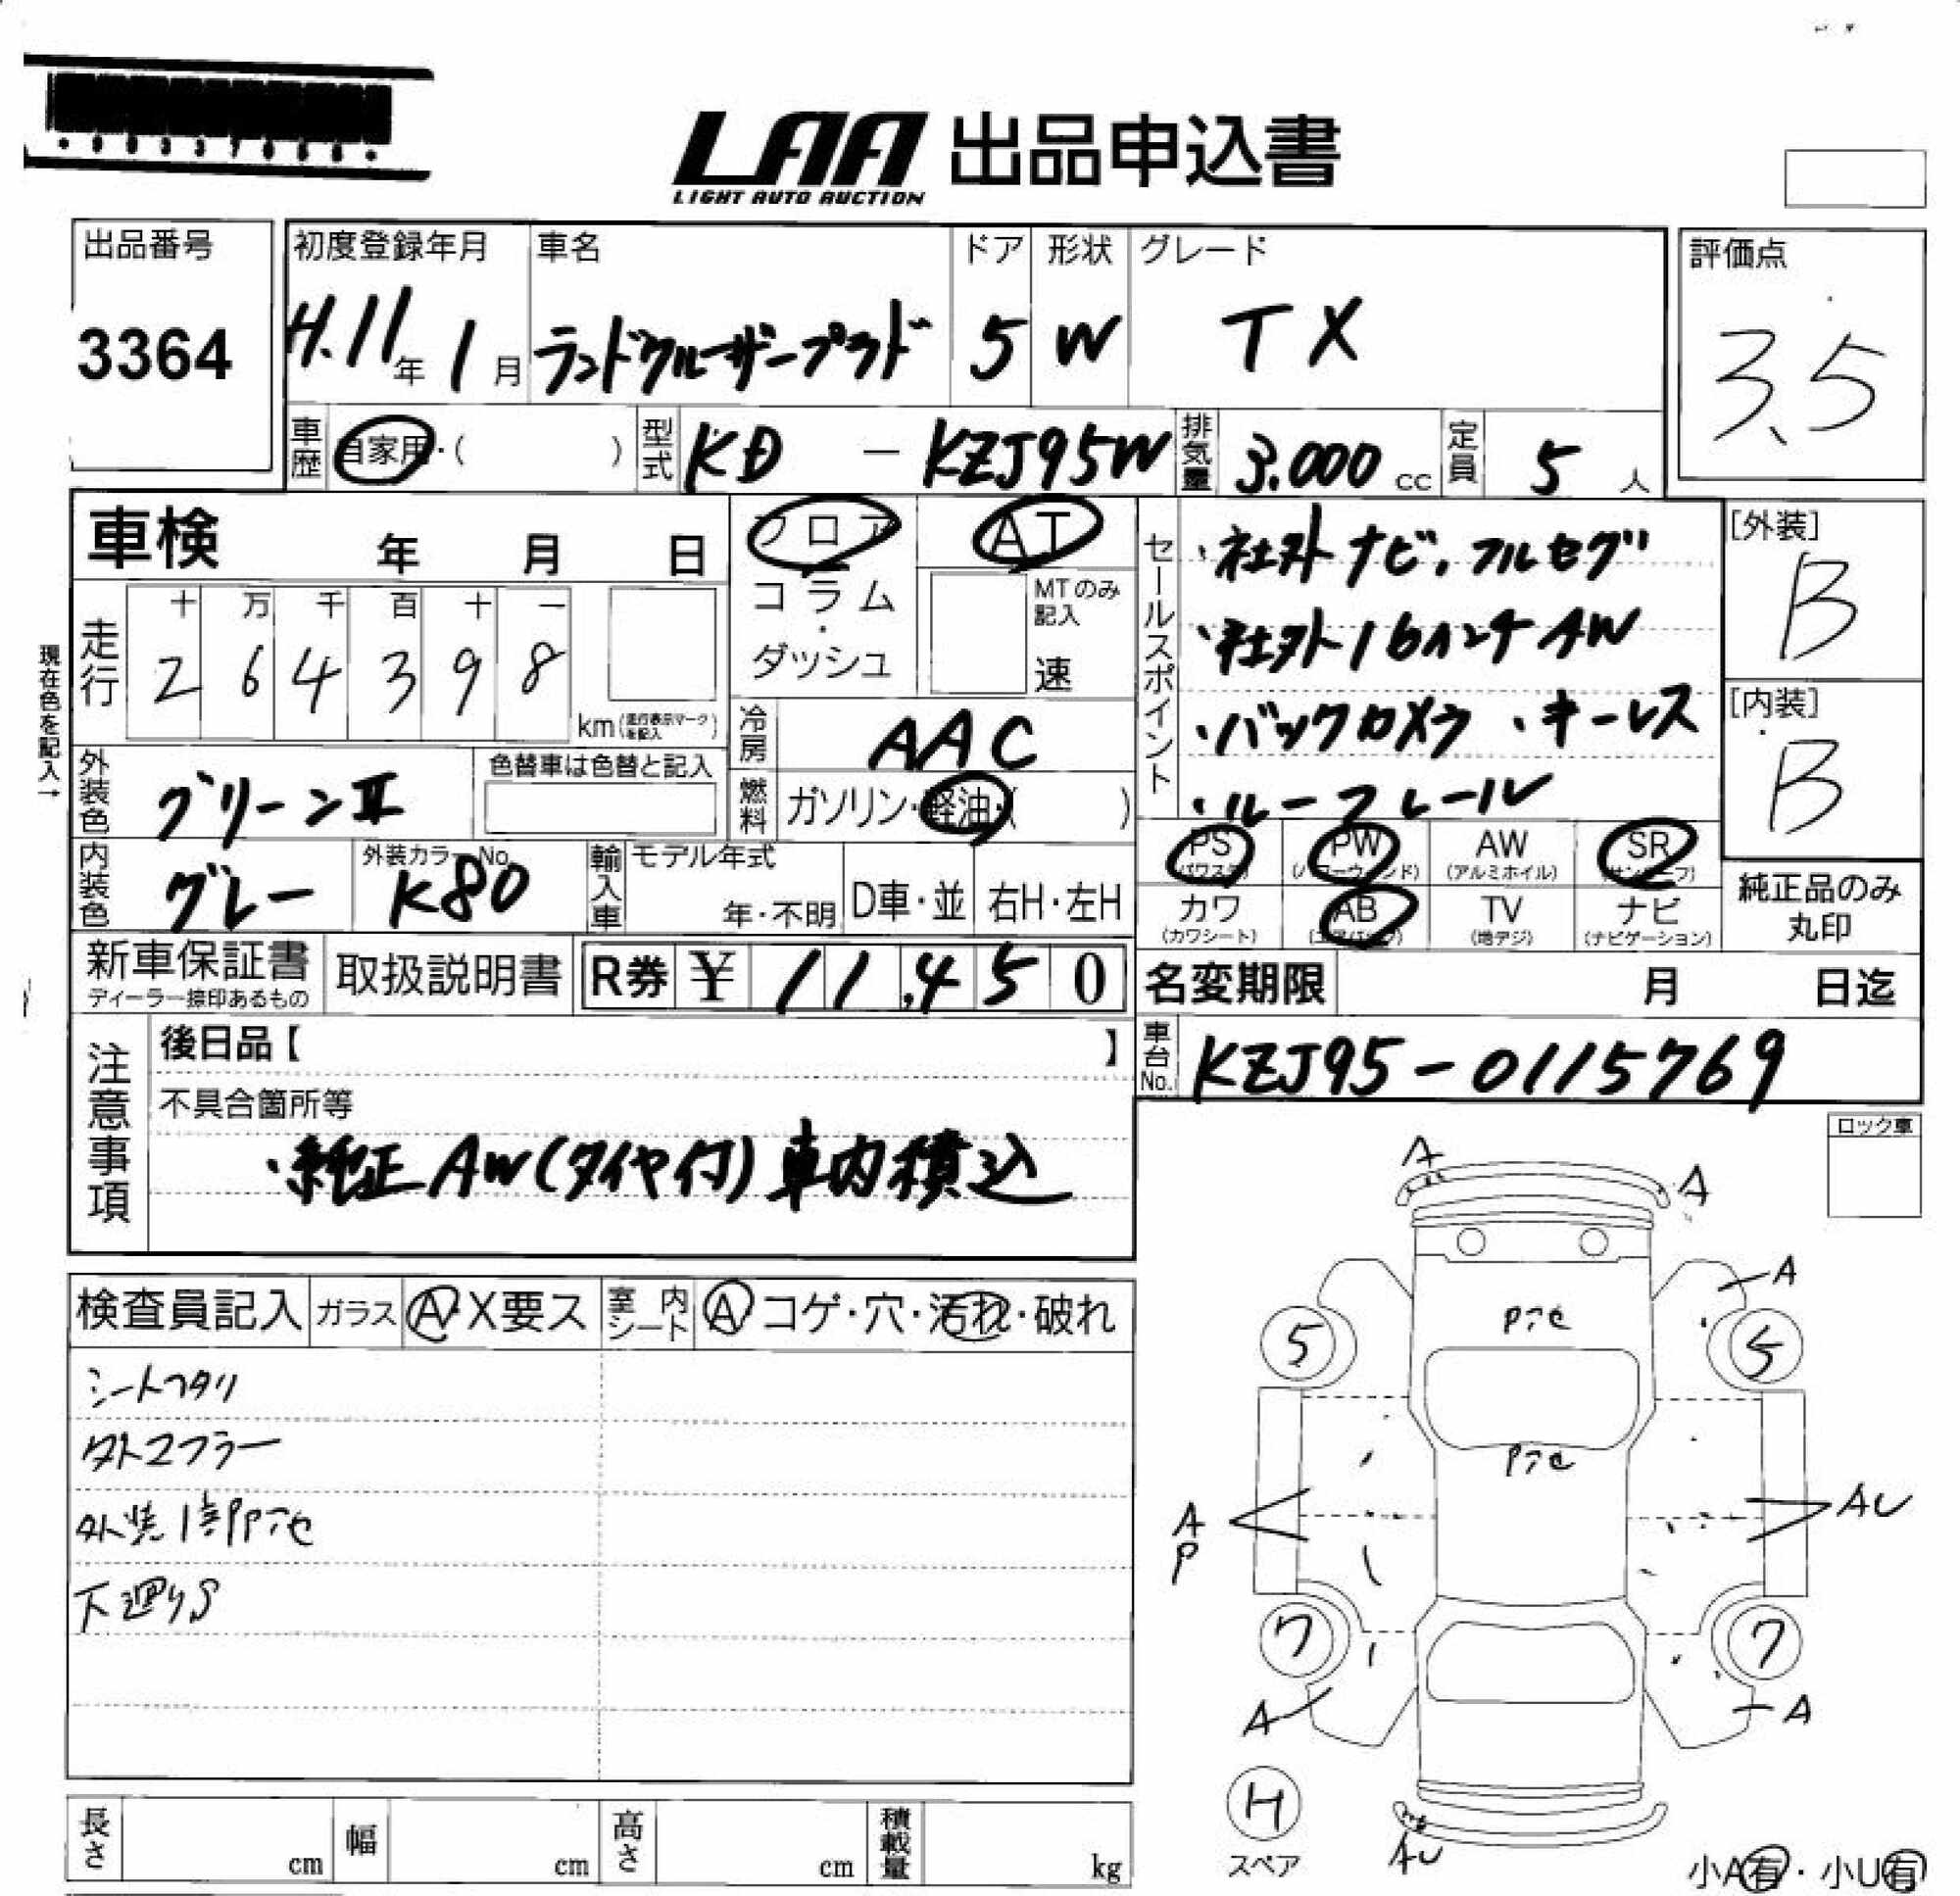 LAA 出品申込書
LIGHT AUTO AUCTION
出品番号
3364
初度登録年月
H.11年1月
車名
ランドクルーザープラド
ドア
5
形状
W
グレード
TX
評価点
3.5
車歴 自家用・( )
型式 KD - KZJ95W
排気量 3.000 cc
定員 5 人
車検 年 月 日
フロア
コラム
・
ダッシュ
AT
MTのみ記入
速
現在色を記入→
走行
十 万 千 百 十 一
2 6 4 3 9 8
km(走行表示マークを記入)
冷房 AAC
燃料 ガソリン・軽油・( )
外装色 グリーンⅡ
色替車は色替と記入
内装色 グレー
外装カラーNo.
K80
輸入車 モデル年式
年・不明
D車・並
右H・左H
セールスポイント
・社外ナビ、フルセグ
・社外16インチAW
・バックカメラ ・キーレス
・ルーフレール
[外装]
B
[内装]
B
PS (パワステ)
PW (パワーウィンド)
AW (アルミホイル)
SR (サンルーフ)
カワ (カワシート)
AB (エアバック)
TV (地デジ)
ナビ (ナビゲーション)
純正品のみ
丸印
新車保証書
ディーラー捺印あるもの
取扱説明書
R券 ¥ 11,450
名変期限 月 日迄
車台No. KZJ95-0115769
注意事項
後日品【 】
不具合箇所等
・純正AW(タイヤ付)車内積込
ロック車
検査員記入
ガラス A・X要ス
室内シート A コゲ・穴・汚れ・破れ
シートヘタリ
外マフラー
外装1部Pテセ
下廻りS
A
A
A
Pテセ
5
5
Pテセ
A
P
AU
7
7
A
A
H
スペア
AU
小A有・小U有
長さ cm
幅 cm
高さ cm
積載量 kg